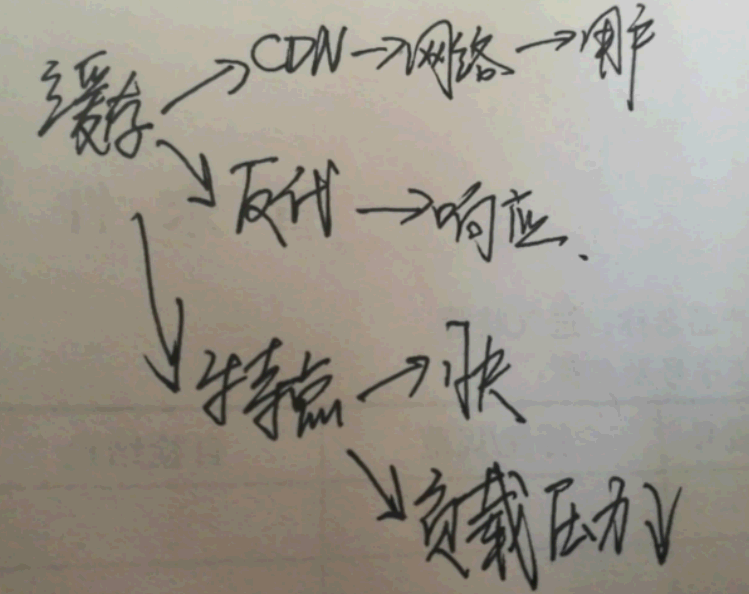 缓存 → CDN → 网络 → 用户
↘ 反代 → 响应.
↓ 特点 → 快
↘ 负载压力↓